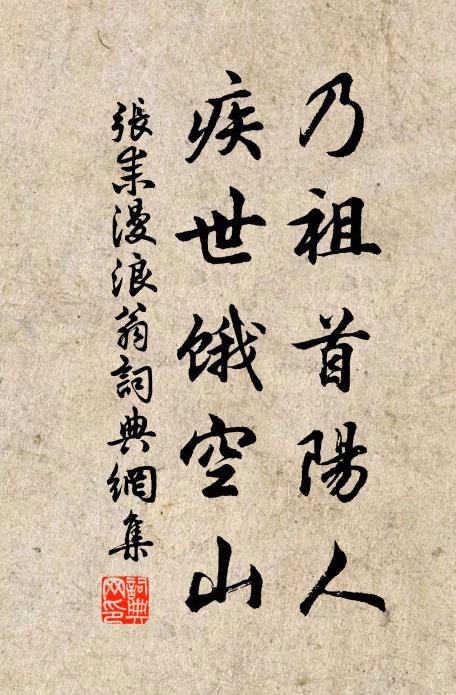 乃祖首陽人
疾世餓空山
張耒漫浪翁詞典網集
詞典
网印